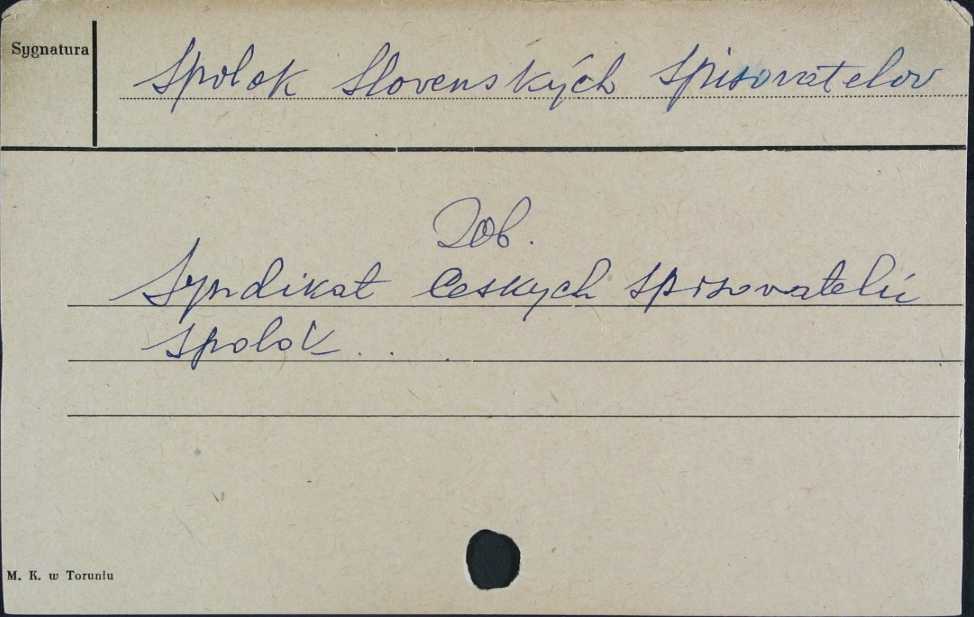 Sygnatura
Spolok Slovenských Spisovatelov
Zob.
Syndikat Ceskych spisovatelú
Spolok . . .
M. K. w Toruniu